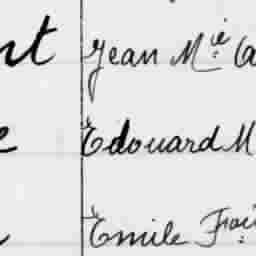 nt Jean M.ie Ca
e Edouard M
Emile Fra